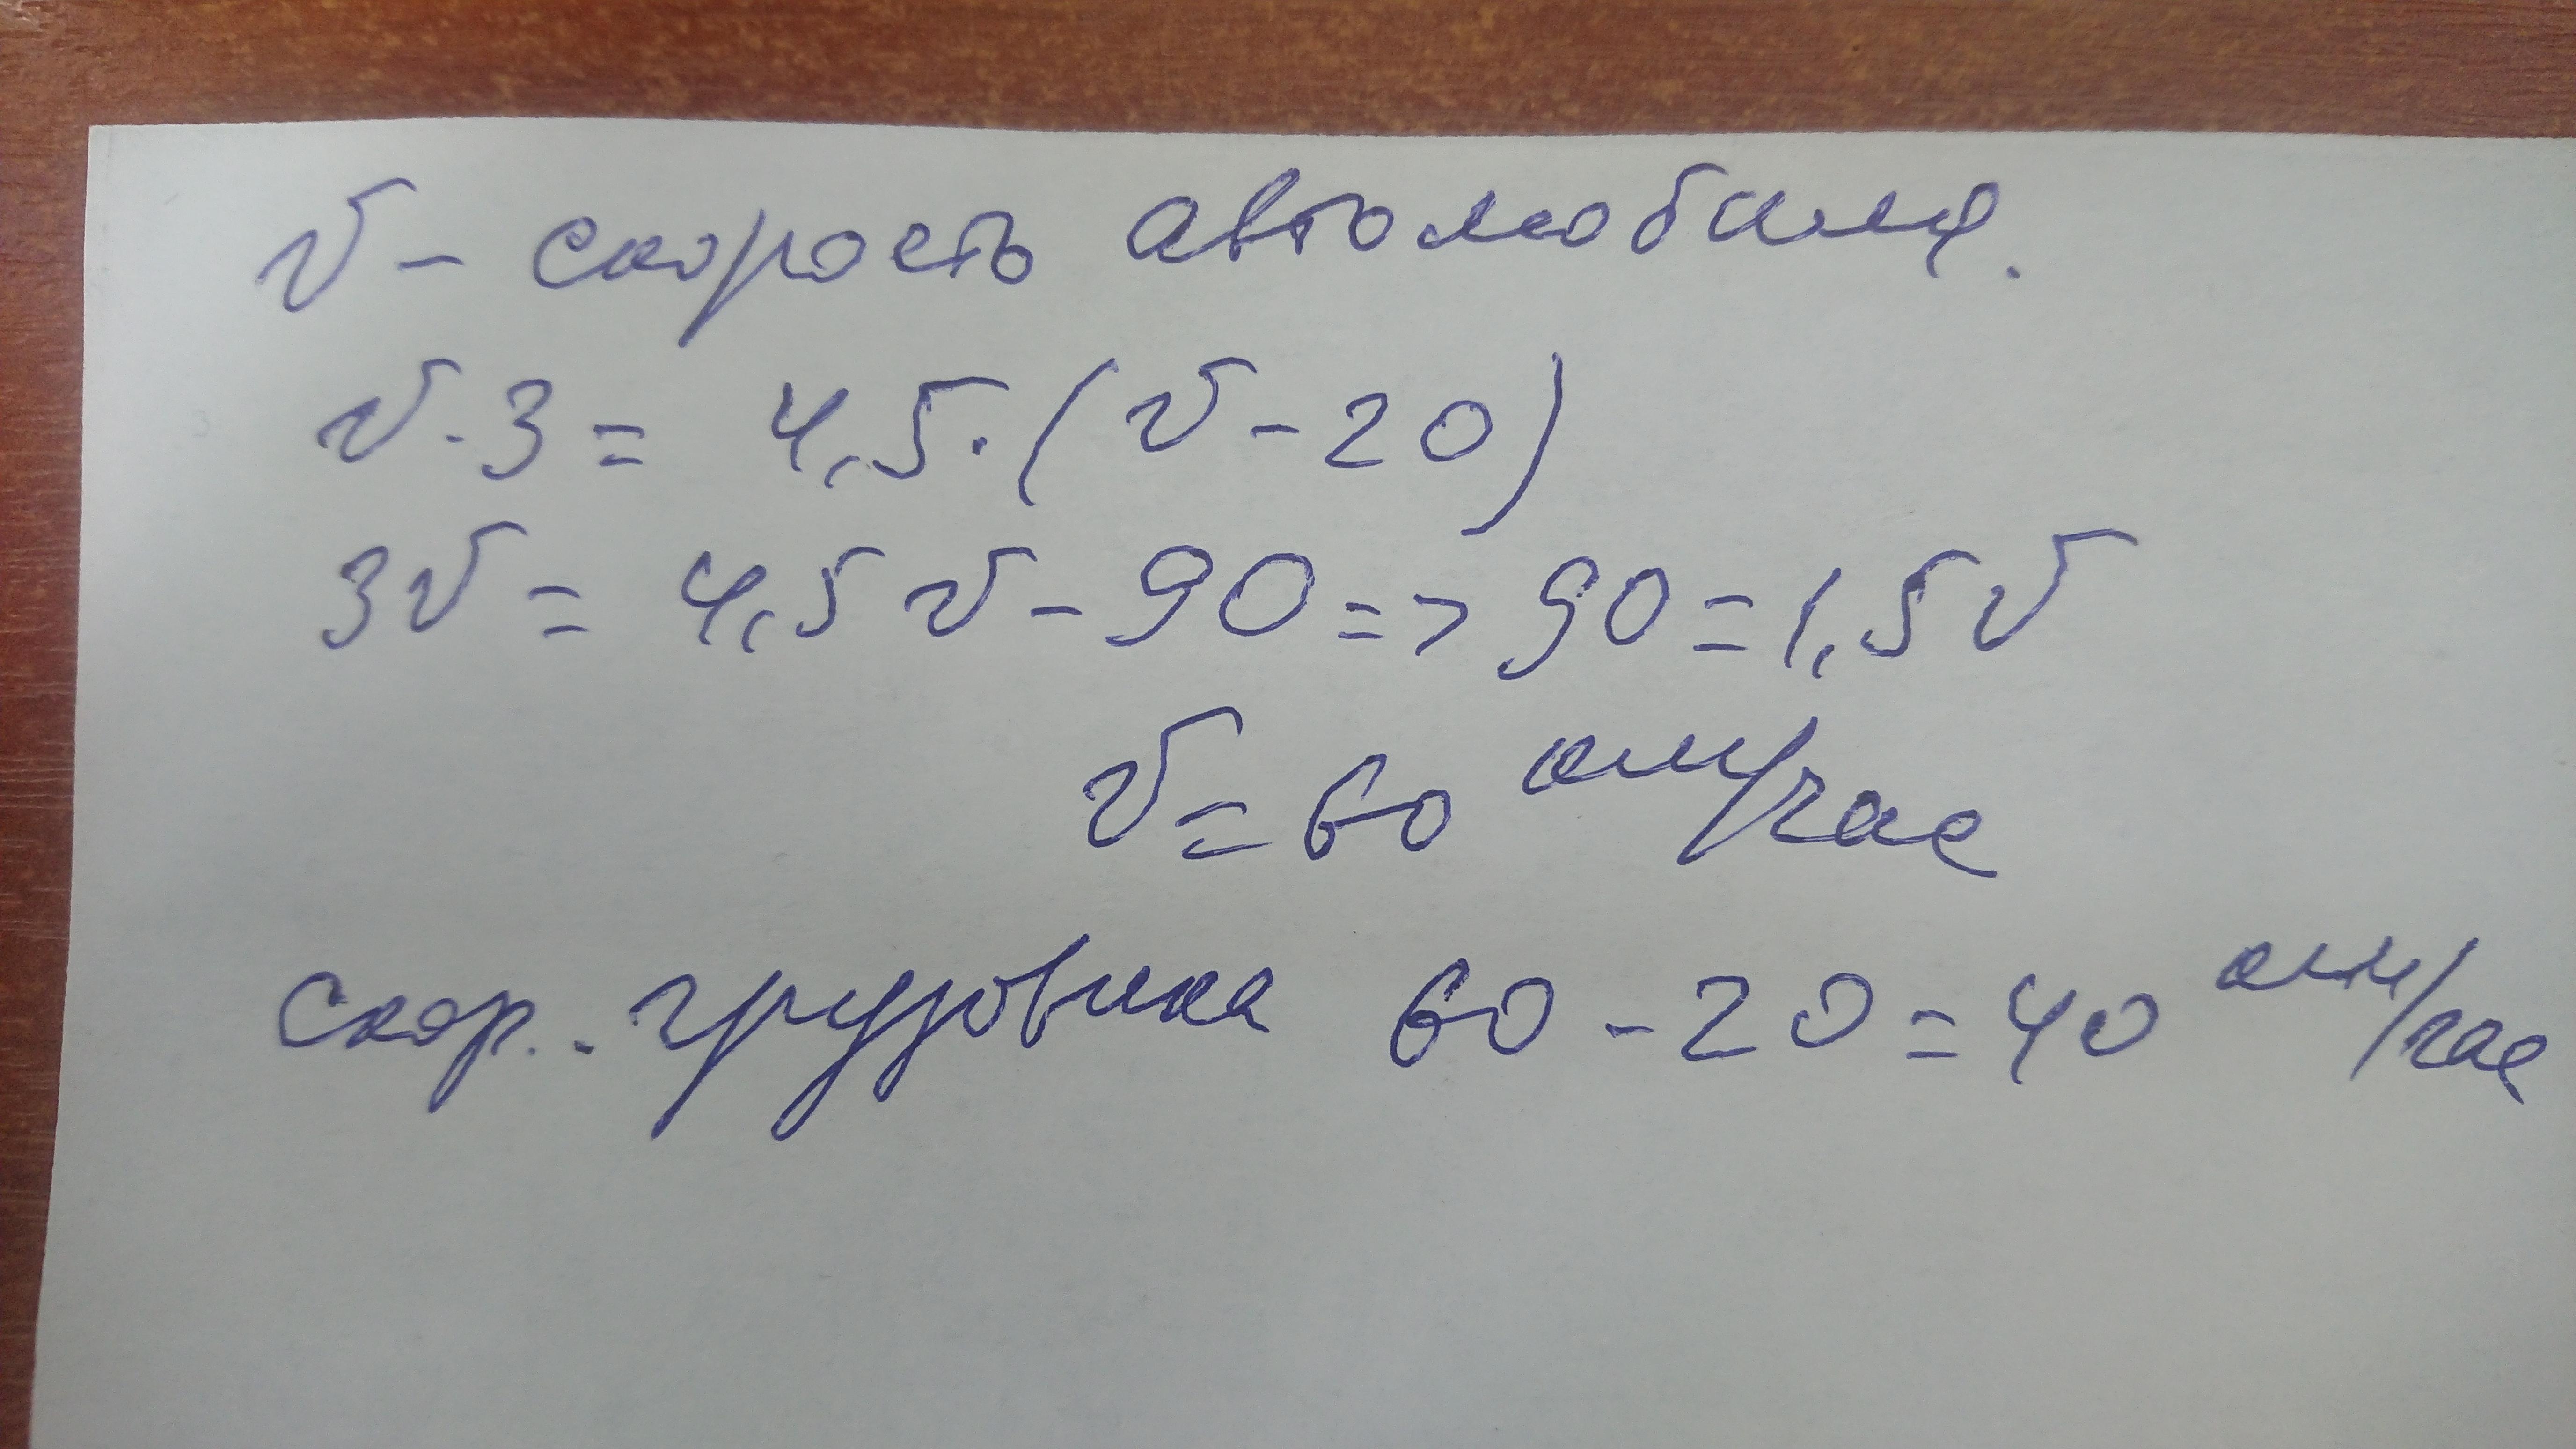 v - скорость автомобиля.
v · 3 = 4,5 · (v - 20)
3v = 4,5v - 90 => 90 = 1,5v
v = 60 км/час
скор. грузовика 60 - 20 = 40 км/час